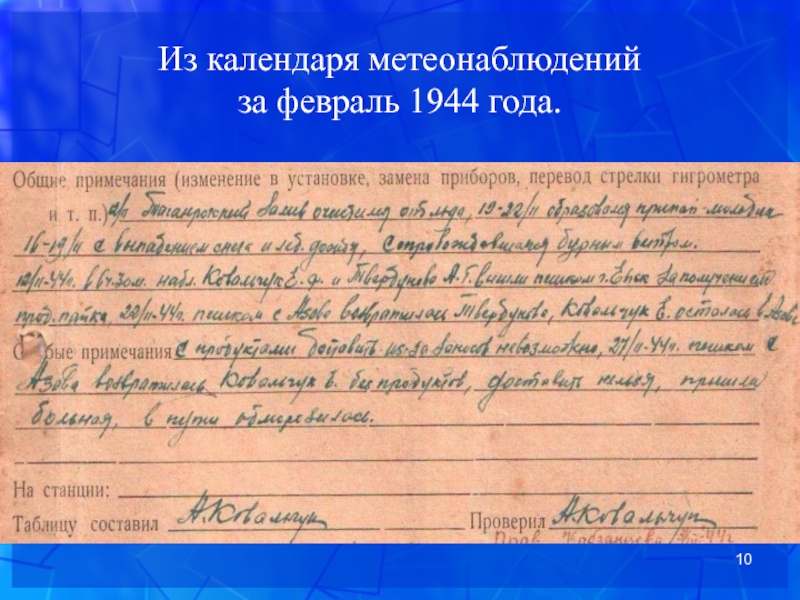 Из календаря метеонаблюдений
за февраль 1944 года.
Общие примечания (изменение в установке, замена приборов, перевод стрелки гигрометра
и т. п.) Таганрогский залив очистился от льда, 19-22/II образовался припай-молодик
16-19/II с выпадением снега и дождя, сопровождавшаяся бурным ветром.
12/II-44г. набл. Ковальчук Е. Ф. и Твербунова А. Г. вышли пешком г. Ейск за получением
прод. пайка, 22/II-44г. пешком с Азова возвратилась Твербунова, Ковальчук Е. осталась в Азове
примечания с продуктами доставить из-за заносов невозможно, 27/II-44г. пешком с
Азова возвратилась Ковальчук Е. без продуктов, доставить нельзя, пришла
больная, в пути обморозилась.
На станции:
Таблицу составил А.Ковальчук Проверил А.Ковальчук
10